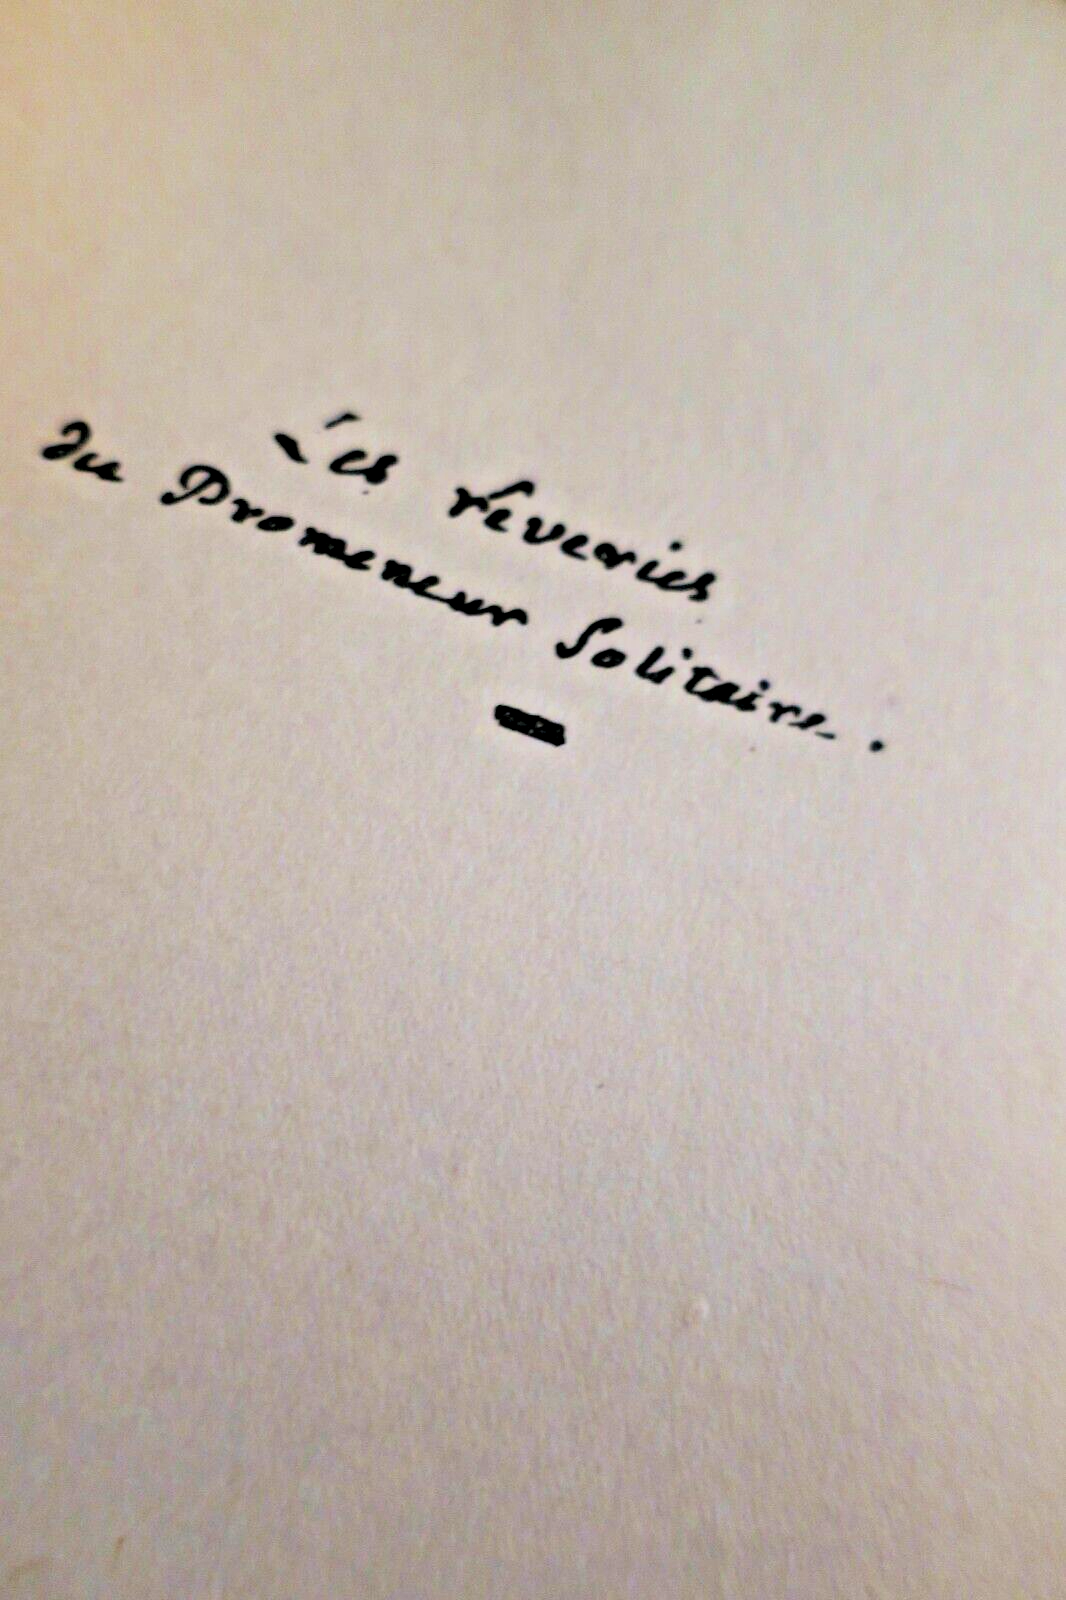 Les rêveries
du Promeneur Solitaire.